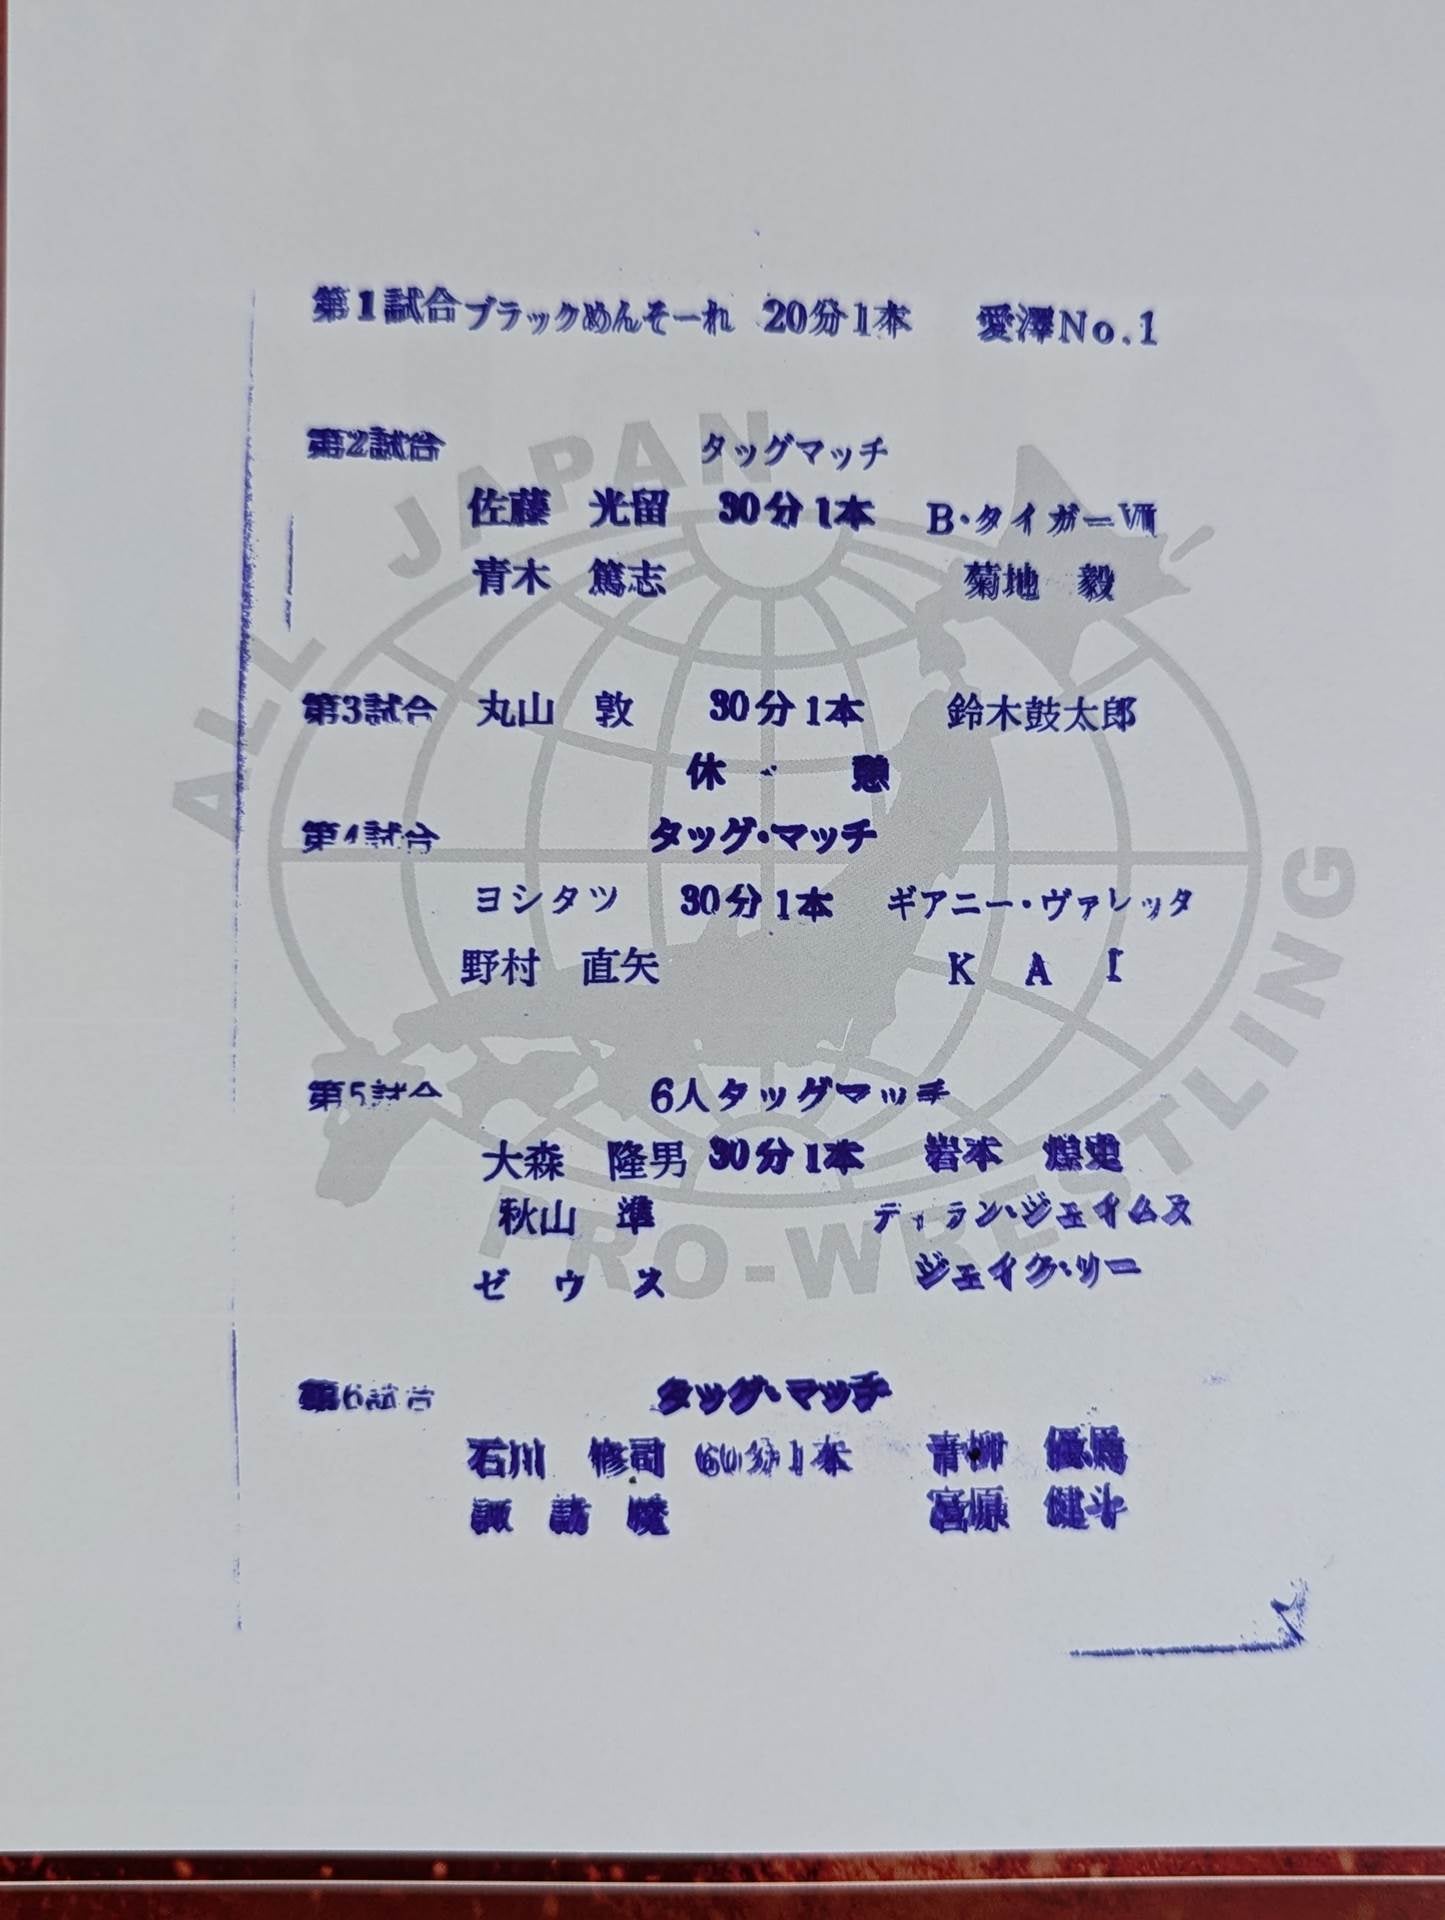 第1試合 ブラックめんそーれ 20分1本 愛澤No.1
第2試合 タッグマッチ
佐藤 光留 30分1本 B・タイガーⅦ
青木 篤志 菊地 毅
第3試合 丸山 敦 30分1本 鈴木鼓太郎
休 憩
第4試合 タッグ・マッチ
ヨシタツ 30分1本 ギアニー・ヴァレッタ
野村 直矢 K A I
第5試合 6人タッグマッチ
大森 隆男 30分1本 岩本 煌史
秋山 準 ディラン・ジェイムス
ゼウス ジェイク・リー
第6試合 タッグ・マッチ
石川 修司 60分1本 青柳 優馬
諏訪魔 宮原 健斗
ALL JAPAN PRO-WRESTLING